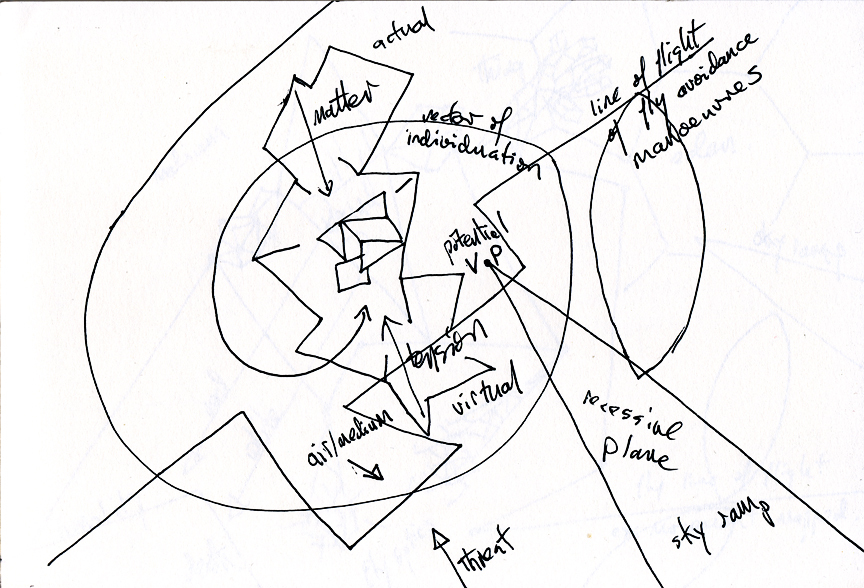 actual
matter
vector of
individuation
line of flight
of fly avoidance
manoeuvres
potential
V P
tension
virtual
air/medium
recessive
plane
sky ramp
threat